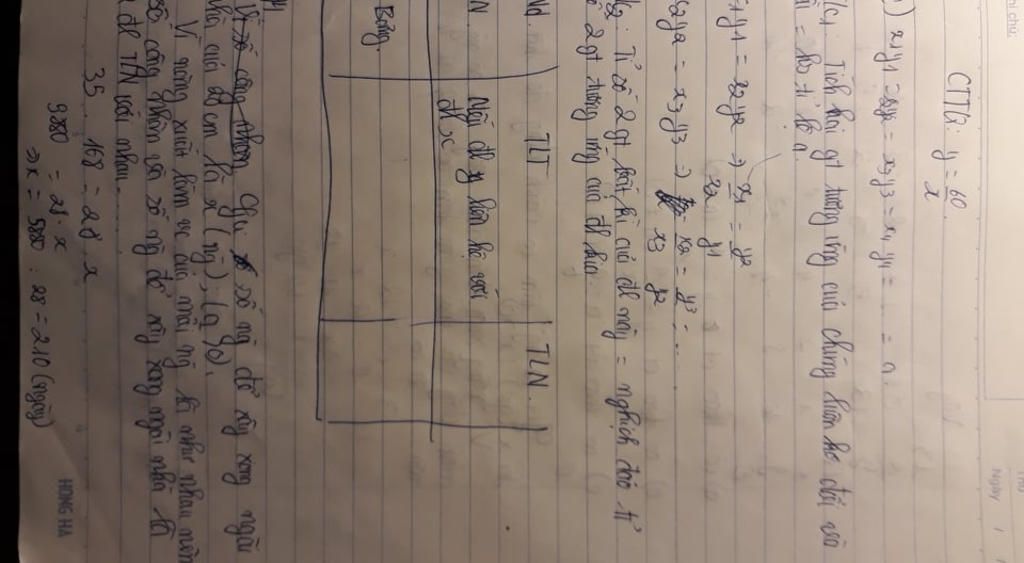 CTTQ: y = 60/x
) x1y1 = x2y2 = x3y3 = x4y4 = ... = a
T/c1: Tích hai gt tương ứng của chúng luôn ko đổi và
= hs tỉ lệ a.
x1y1 = x2y2 => x1/x2 = y2/y1
x2y2 = x3y3 => x2/x3 = y3/y2 = ...
T/c2: Tỉ số 2 gt bất kì của đl này = nghịch đảo tỉ
số 2 gt tương ứng của đl kia.
Nd TLT TLN.
ĐN. Nếu đl y liên hệ với
đl x
Bảng
Vì số công nhân Gọi số ng để xây xong ngôi
nhà của 28 cn là x (ng); (a>0)
Vì năng suất làm vc của mỗi ng là như nhau nên
số công nhân và số ng để xây xong ngôi nhà là
2 đl TLN với nhau.
35 . 168 = 28 . x
5880 = 28 . x
=> x = 5880 : 28 = 210 (ngày)
HONG HA
Ngày